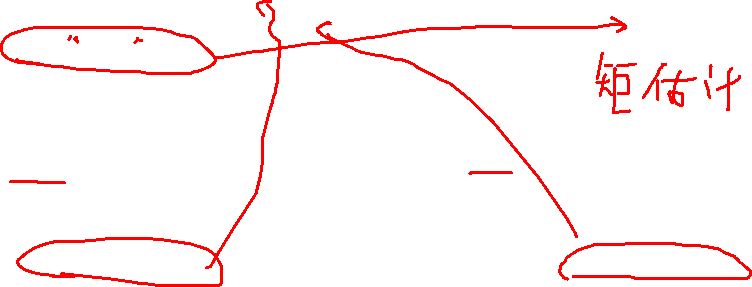 矩估计